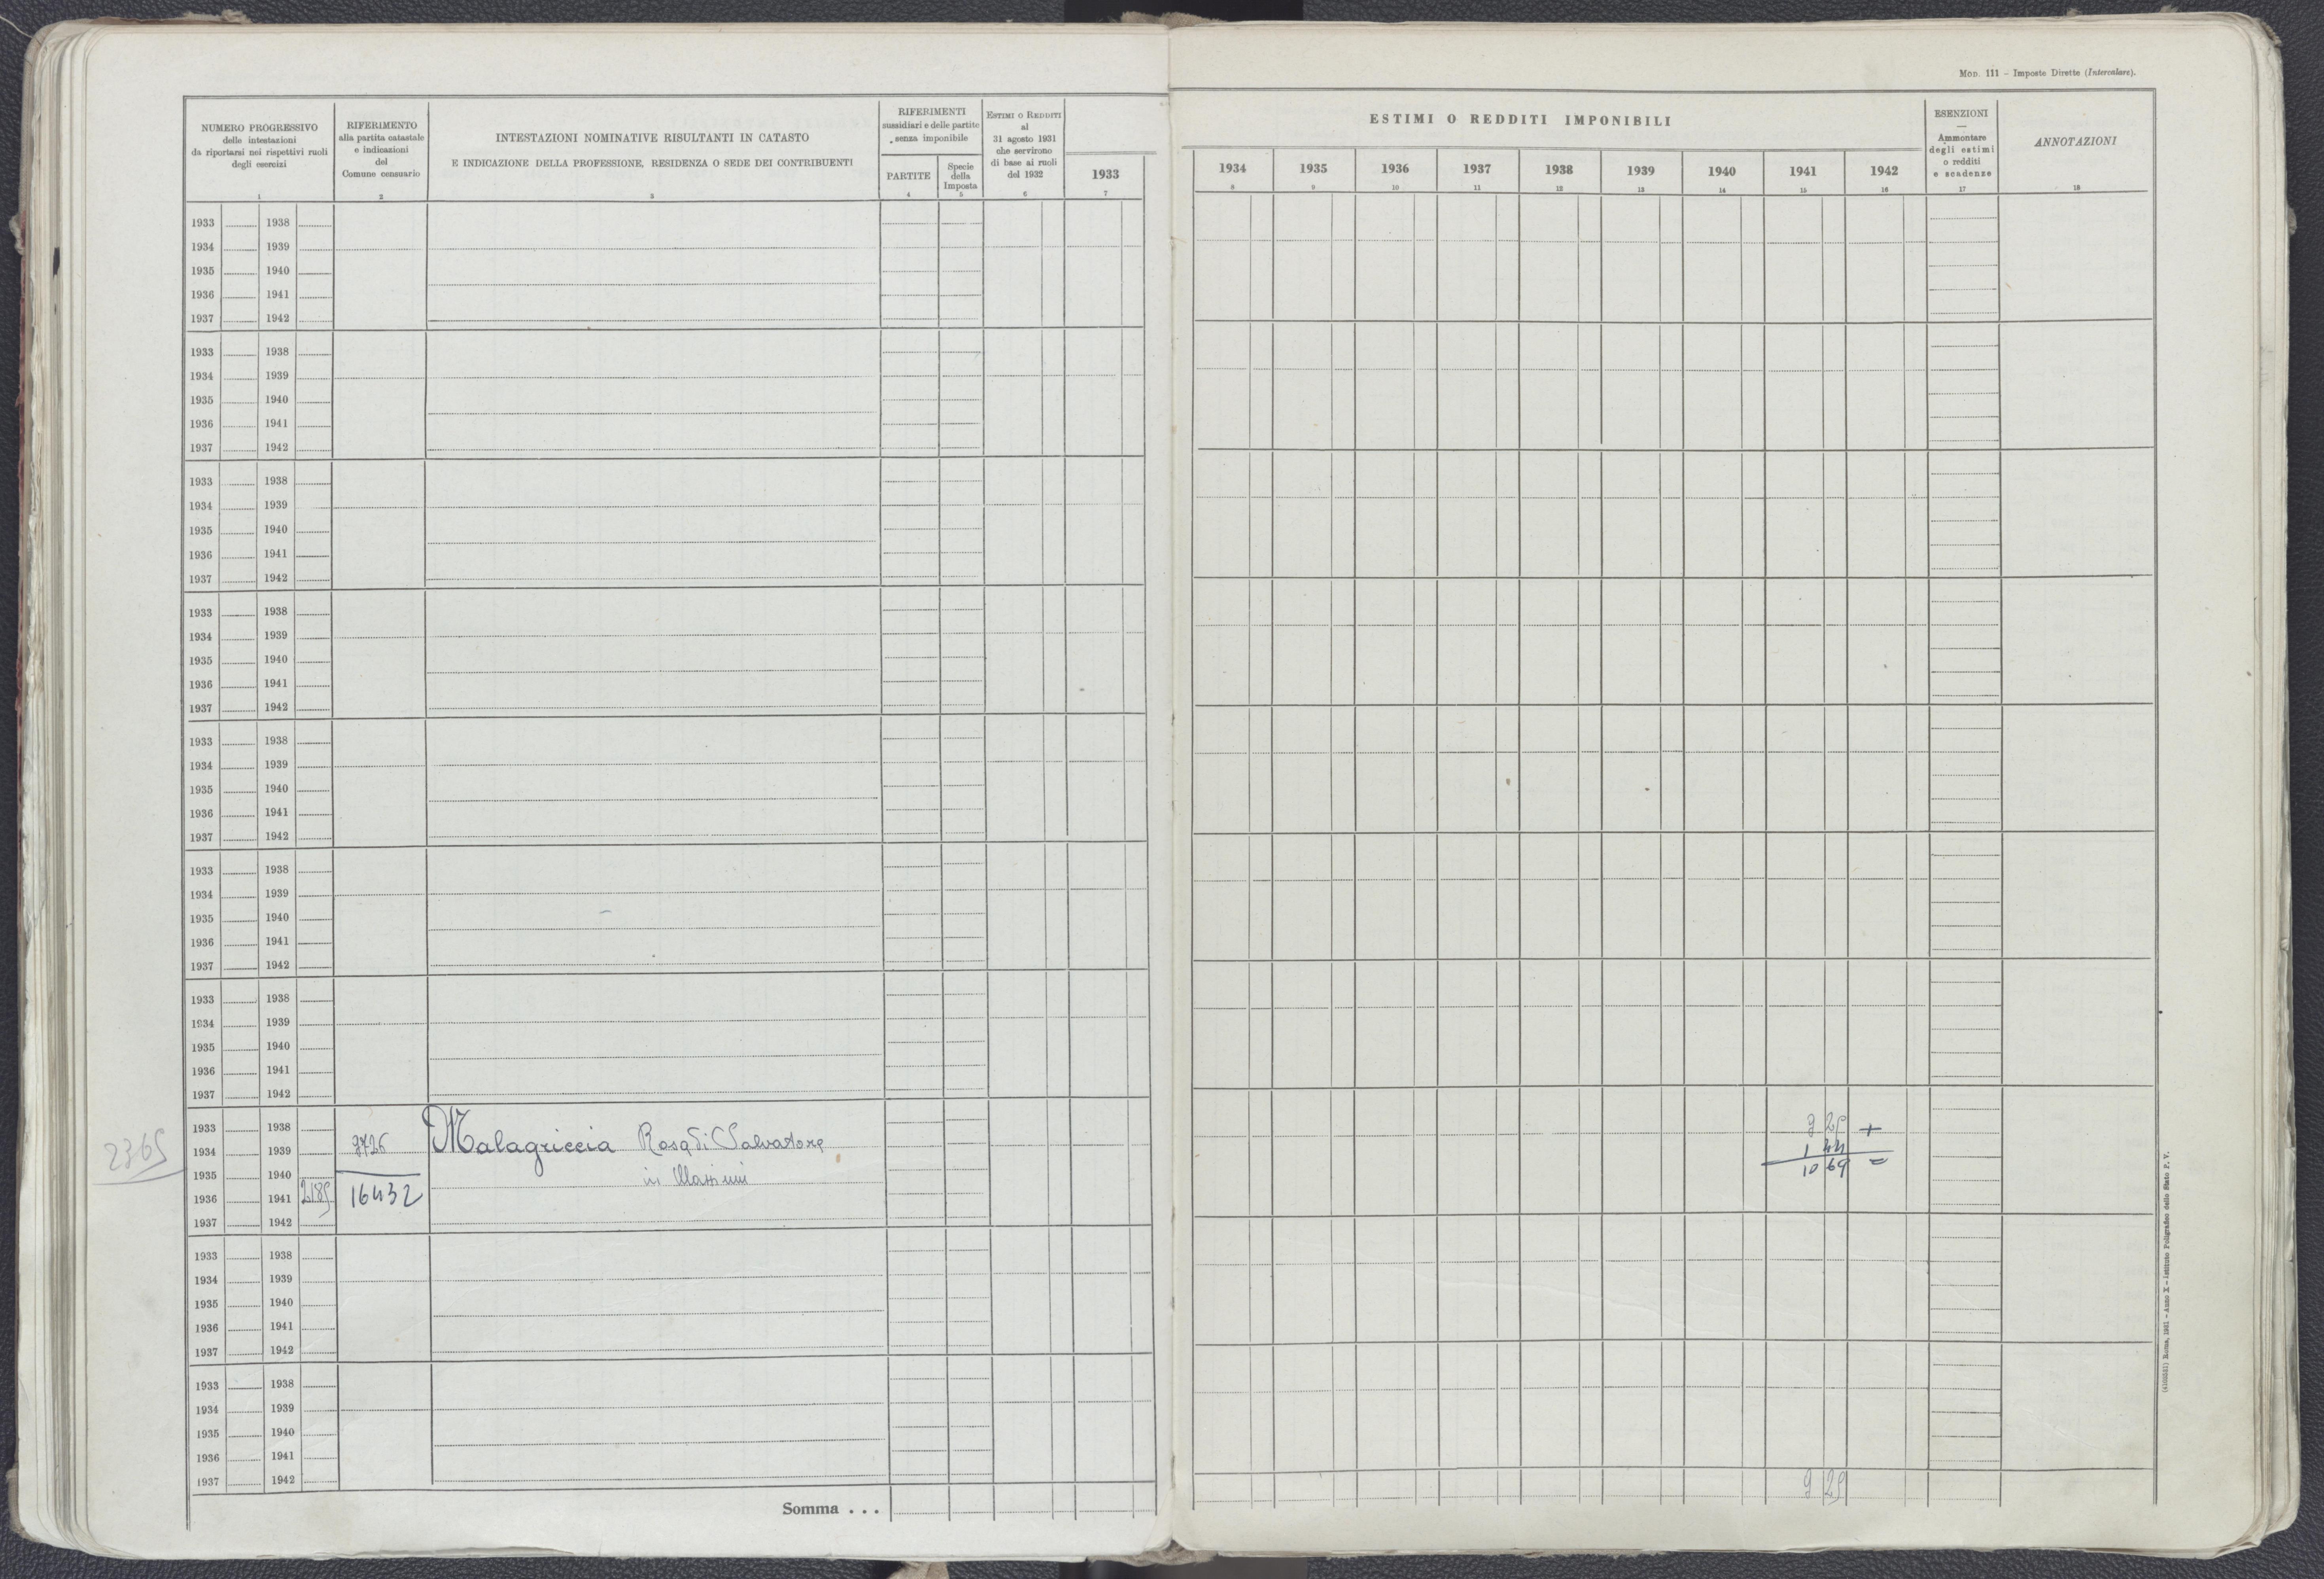 MOD. 111 - Imposte Dirette (Intercalare).
NUMERO PROGRESSIVO
delle intestazioni
da riportarsi nei rispettivi ruoli
degli esercizi
1
RIFERIMENTO
alla partita catastale
e indicazioni
del
Comune censuario
2
INTESTAZIONI NOMINATIVE RISULTANTI IN CATASTO
E INDICAZIONE DELLA PROFESSIONE, RESIDENZA O SEDE DEI CONTRIBUENTI
3
RIFERIMENTI
sussidiari e delle partite
senza imponibile
PARTITE
4
Specie
della
Imposta
5
ESTIMI O REDDITI
al
31 agosto 1931
che servirono
di base ai ruoli
del 1932
6
1933
7
ESTIMI O REDDITI IMPONIBILI
1934 1935 1936 1937 1938 1939 1940 1941 1942
8 9 10 11 12 13 14 15 16
ESENZIONI
Ammontare
degli estimi
o redditi
e scadenze
17
ANNOTAZIONI
18
1933 1938
1934 1939
1935 1940
1936 1941
1937 1942
1933 1938
1934 1939
1935 1940
1936 1941
1937 1942
1933 1938
1934 1939
1935 1940
1936 1941
1937 1942
1933 1938
1934 1939
1935 1940
1936 1941
1937 1942
1933 1938
1934 1939
1935 1940
1936 1941
1937 1942
1933 1938
1934 1939
1935 1940
1936 1941
1937 1942
1933 1938
1934 1939
1935 1940
1936 1941
1937 1942
1933 1938 9 25 +
2365 1934 1939 9726 Malagriccia Rosa di Salvatore 1 44
1935 1940 in Massimi 10 69 =
1936 1941 2185 16432
1937 1942
1933 1938
1934 1939
1935 1940
1936 1941
1937 1942
1933 1938
1934 1939
1935 1940
1936 1941
1937 1942
Somma . . . 9 25
(4103051) Roma, 1931 - Anno X - Istituto Poligrafico dello Stato P. V.